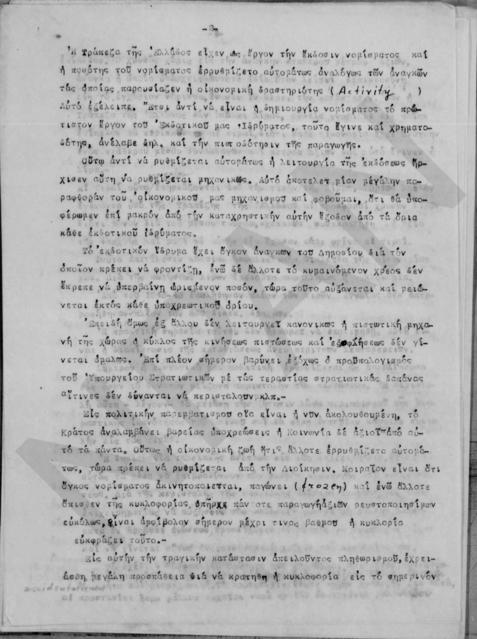 -8-
Ἡ Τράπεζα τῆς Ἑλλάδος εἶχεν ὡς ἔργον τὴν ἔκδοσιν νομίσματος καὶ
ἡ ποσότης τοῦ νομίσματος ἐρρυθμίζετο αὐτομάτως ἀναλόγως τῶν ἀναγκῶν
τὰς ὁποίας παρουσίαζεν ἡ οἰκονομική δραστηριότης (Activity )
Αὐτό ἐξέλειπε. Ἔτσι ἀντί νά εἶναι ἡ δημιουργία νομίσματος τό πρώ-
τιστον ἔργον τοῦ Ἐκδοτικοῦ μας Ἱδρύματος, τοῦτο ἔγινε καί χρηματο-
δότης, ἀνέλαβε δηλ. καί τήν πιστοδότησιν τῆς παραγωγῆς.
Οὕτω ἀντί νά ρυθμίζεται αὐτομάτως ἡ λειτουργία τῆς ἐκδόσεως ἤρ-
χισεν αὕτη νά ρυθμίζεται μηχανικῶς. Αὐτό ἀποτελεῖ μίαν μεγάλην πα-
ραφθοράν τοῦ οἰκονομικοῦ μας μηχανισμοῦ καί φοβοῦμαι, ὅτι θά ὑπο-
φέρωμεν ἐπί μακρόν ἀπό τήν καταχρηστικήν αὐτήν ἔξοδον ἀπό τά ὅρια
κάθε ἐκδοτικοῦ ἱδρύματος.
Τό ἐκδοτικόν ἵδρυμα ἔχει ὄγκον ἀναγκῶν τοῦ Δημοσίου διά τόν
ὁποῖον πρέπει νά φροντίζῃ, ἐνῶ δέ ἄλλοτε τό κυμαινόμενον χρέος δέν
ἔπρεπε νά ὑπερβαίνῃ ὡρισμένον ποσόν, τώρα τοῦτο αὐξάνεται καί μειώ-
νεται ἐκτός κάθε ὑποχρεωτικοῦ ὁρίου.
Ἐπειδή ὅμως ἐξ ἄλλου δέν λειτουργεῖ κανονικῶς ἡ πιστωτική μηχα-
νή τῆς χώρας ὁ κύκλος τῆς κινήσεως πιστώσεως καί ἐξοφλήσεως δέν γί-
νεται ὁμαλῶς. Ἐπί πλέον σήμερον βαρύνει ἐξόχως ὁ προϋπολογισμός
τοῦ Ὑπουργείου Στρατιωτικῶν μέ τάς τεραστίας στρατιωτικάς δαπάνας
αἵτινες δέν δύνανται νά περισταλοῦν.κλπ.-
Εἰς πολιτικήν παρεμβατισμοῦ οἵα εἶναι ἡ νῦν ἀκολουθουμένη, τό
Κράτος ἀναλαμβάνει βαρείας ὑποχρεώσεις ἡ Κοινωνία δέ ἀξιοῖ ἀπό αὐ-
τό τά πάντα. Οὕτως ἡ οἰκονομική ζωή ἥτις ἄλλοτε ἐρρυθμίζετο αὐτομά-
τως, τώρα πρέπει νά ρυθμίζεται ἀπό τήν Διοίκησιν. Καιραῖον εἶναι ὅτι
ὄγκος νομίσματος ἀκινητοποιεῖται, παγώνει (frozen) καί ἐνῶ ἄλλοτε
ὄπισθεν τῆς κυκλοφορίας, ὑπῆρχε πάντοτε παραγωγή ἀξιῶν ρευστοποιησίμων
εὐκόλως, εἶναι ἀμφίβολον σήμερον μέχρι τίνος βαθμοῦ ἡ κυκλορία
ἐκφράζει τοῦτο.-
Εἰς αὐτήν τήν τραγικήν κατάστασιν ἀπειλοῦντος πληθωρισμοῦ, ἐχρει-
άσθη μεγάλη προσπάθεια διά νά κρατηθῇ ἡ κυκλοφορία εἰς τό σημερινόν